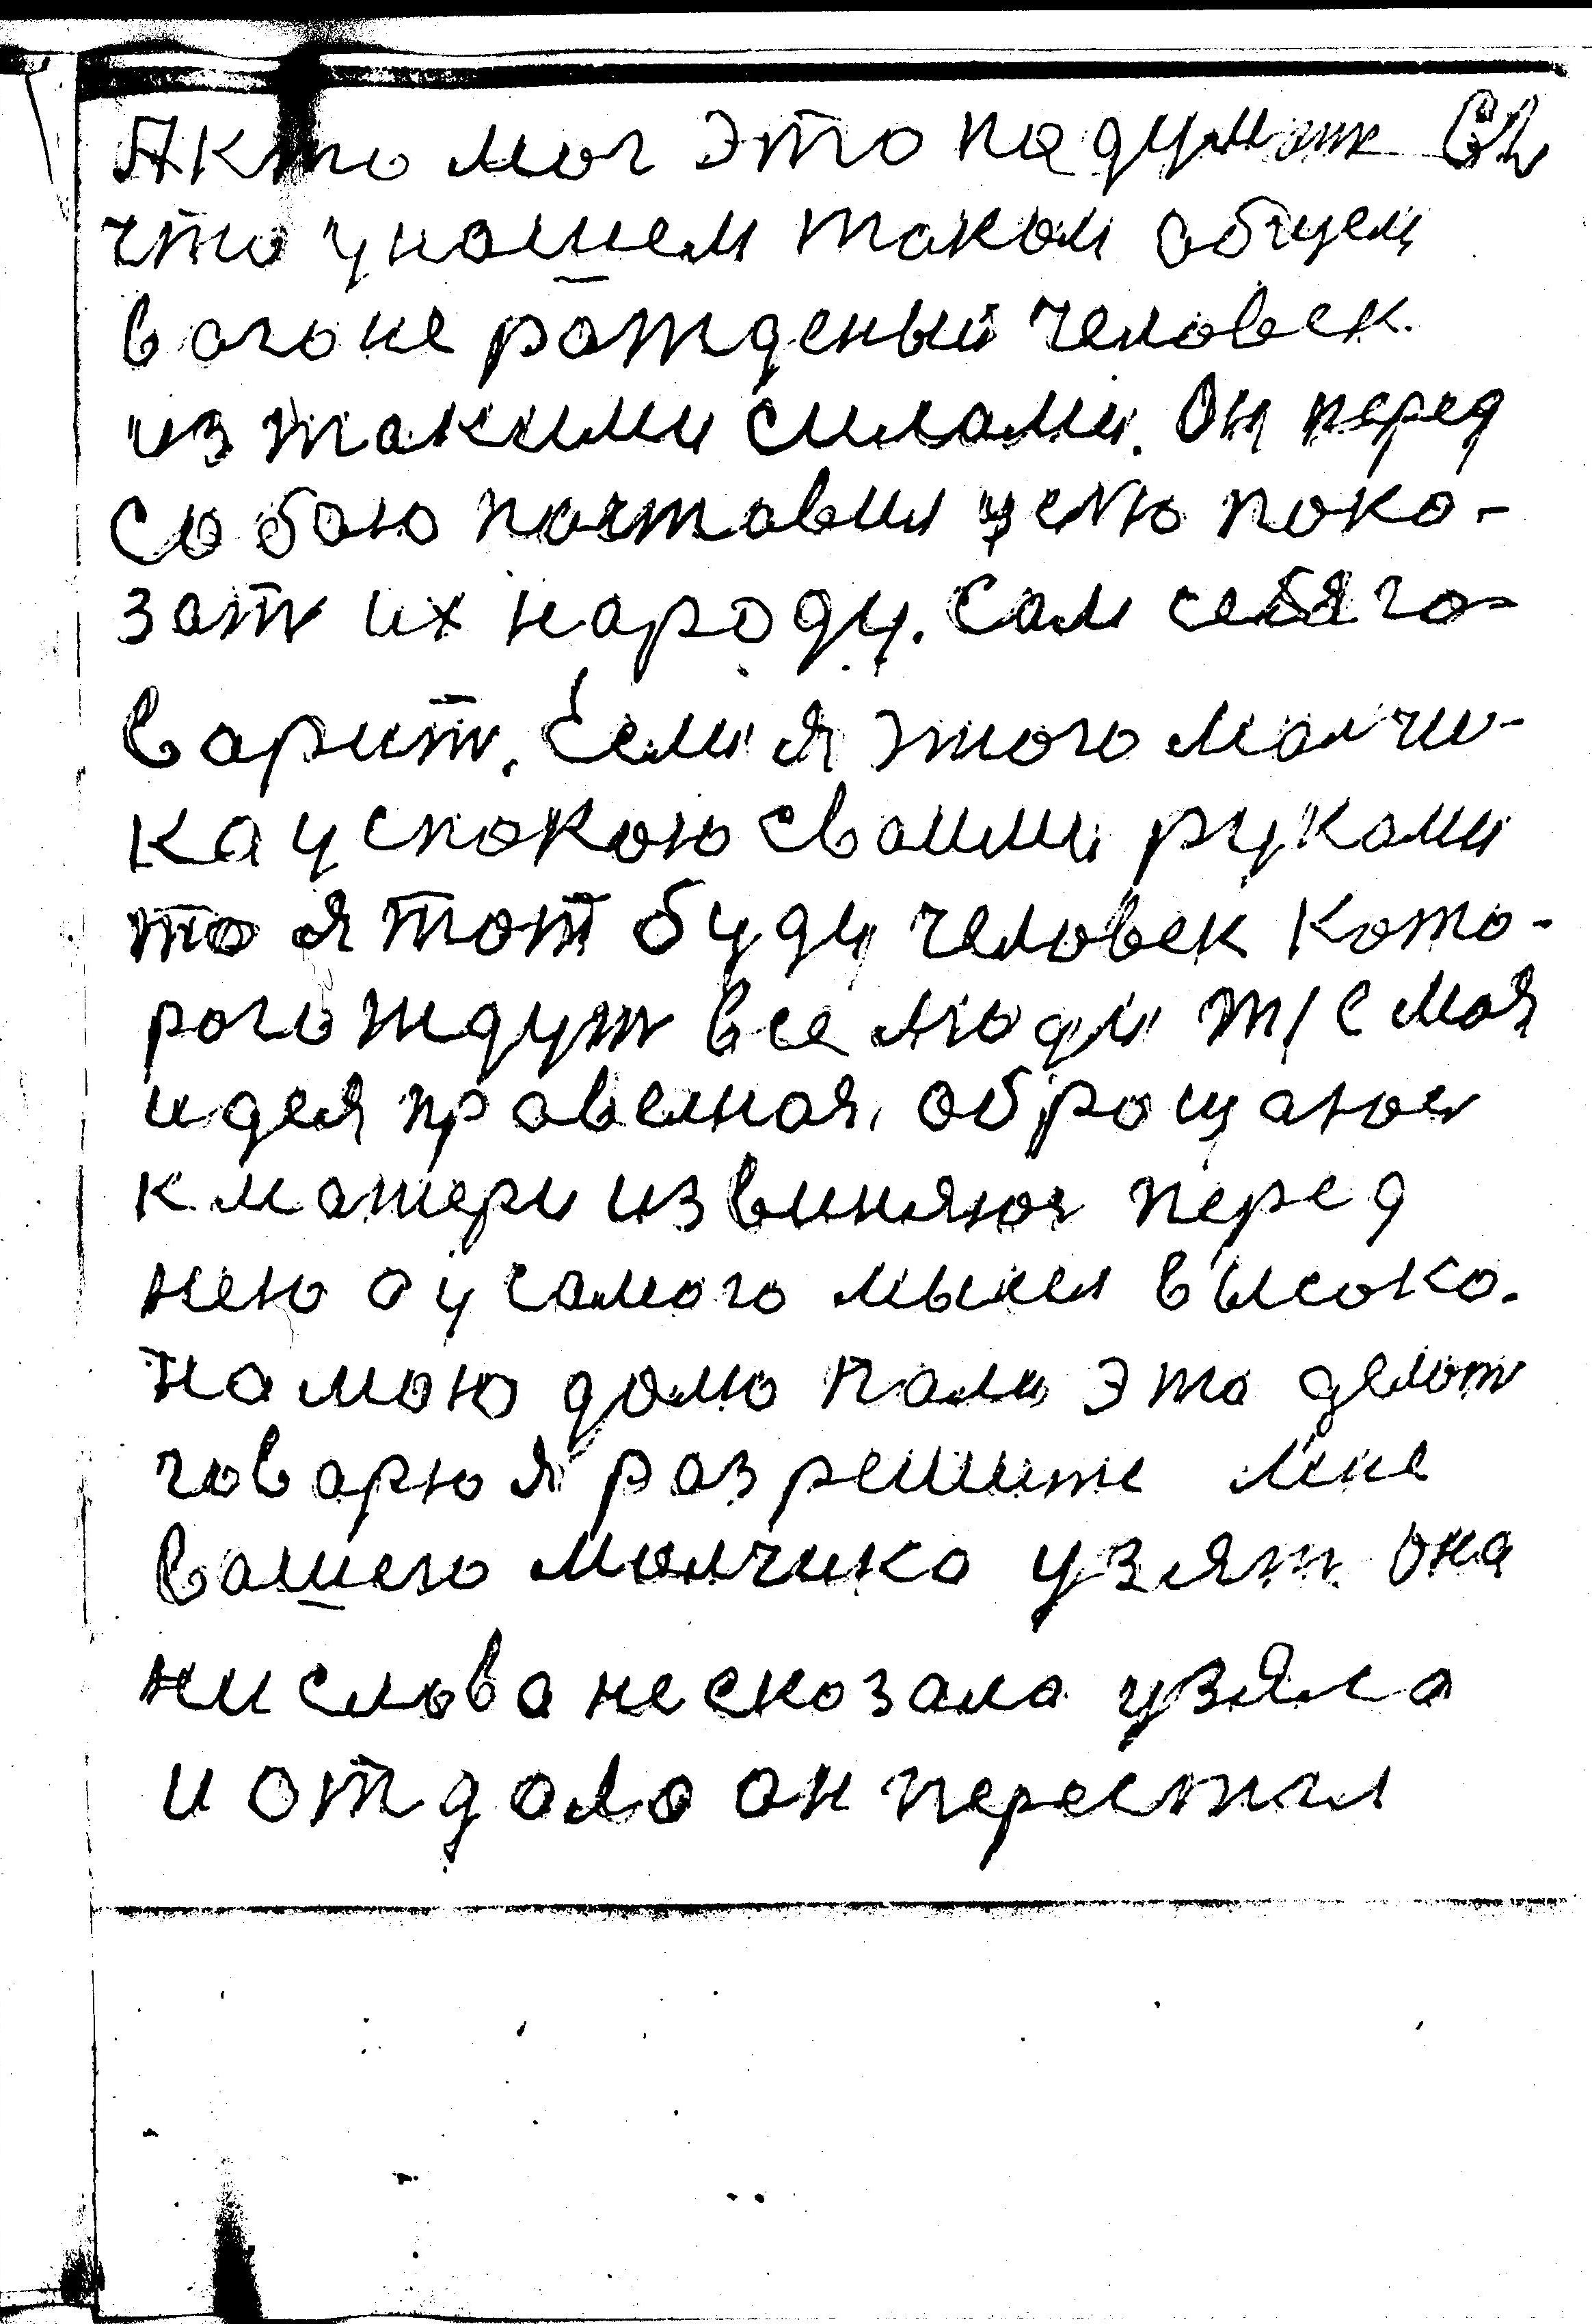 А кто мог это падумат
что у нашем таком общем
вагоне ражденый человек
из такими силами. Он перед
собою поставил целю пока-
зат их народу. Сам себя го-
варит. Если я этого малчи-
ка успокою своими руками
то я тот буду человек кото-
рого ждут все люди т/е моя
идея правелная, обращаюсь
к матери извиняюсь перед
нею а у самого мысли высоко.
На мою долю пали это делат
говарю я разрешите мне
вашего малчика узят она
ни слова не сказала узяла
и отдала он перестал